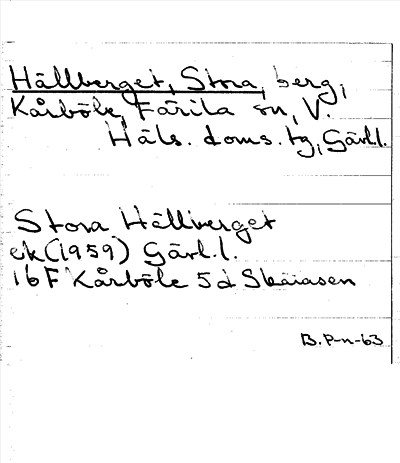 Hällberget, Stora, berg,
Kårböle, Färila sn, V.
Häls. doms. tg, Gävl.l.
Stora Hällberget
ek (1959) Gävl.l.
16 F Kårböle 5 d Skäråsen
B. P-n-63